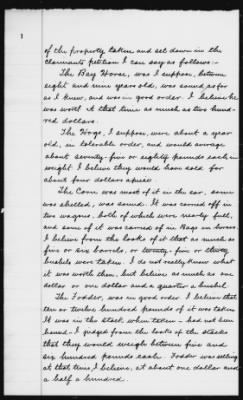 1
of the property taken and set down in the
claimants petition I can say as follows:-
The Bay Horse, was I suppose, between
eight and nine years old, was sound as far
as I knew, and was in good order. I believe he
was worth at that time as much as two hund-
red dollars.
The Hogs, I suppose, were about a year
old, in tolerable order, and would average
about seventy-five or eighty pounds each in
weight I believe they would have sold for
about four dollars apiece
The Corn was most of it in the ear, some
was shelled, was sound. It was carried off in
two wagons, both of which were nearly full,
and some of it was carried off in Bags on horses
I believe from the looks of it that as much as
five or six barrels, or twenty-five or thirty
bushels were taken. I do not really know what
it was worth then, but believe as much as one
dollar or one dollar and a quarter a bushel
The Fodder, was in good order. I believe that
ten or twelve hundred pounds of it was taken
It was in the stack when taken - had not been
I judged from the looks of the stacks
that they would weigh between five and
six hundred pounds each. Fodder was selling
at that time, I believe, at about one dollar and
a half a hundred.